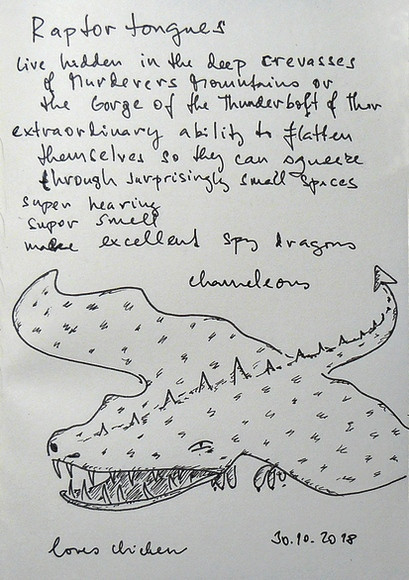 Raptor tongues
live hidden in the deep crevasses
of Murderers Mountains or
the Gorge of the Thunderbolt of Thor
extraordinary ability to flatten
themselves so they can squeeze
through surprisingly small spaces
super hearing
super smell
make excellent spy dragons
chameleons
loves chicken
30.10.2018